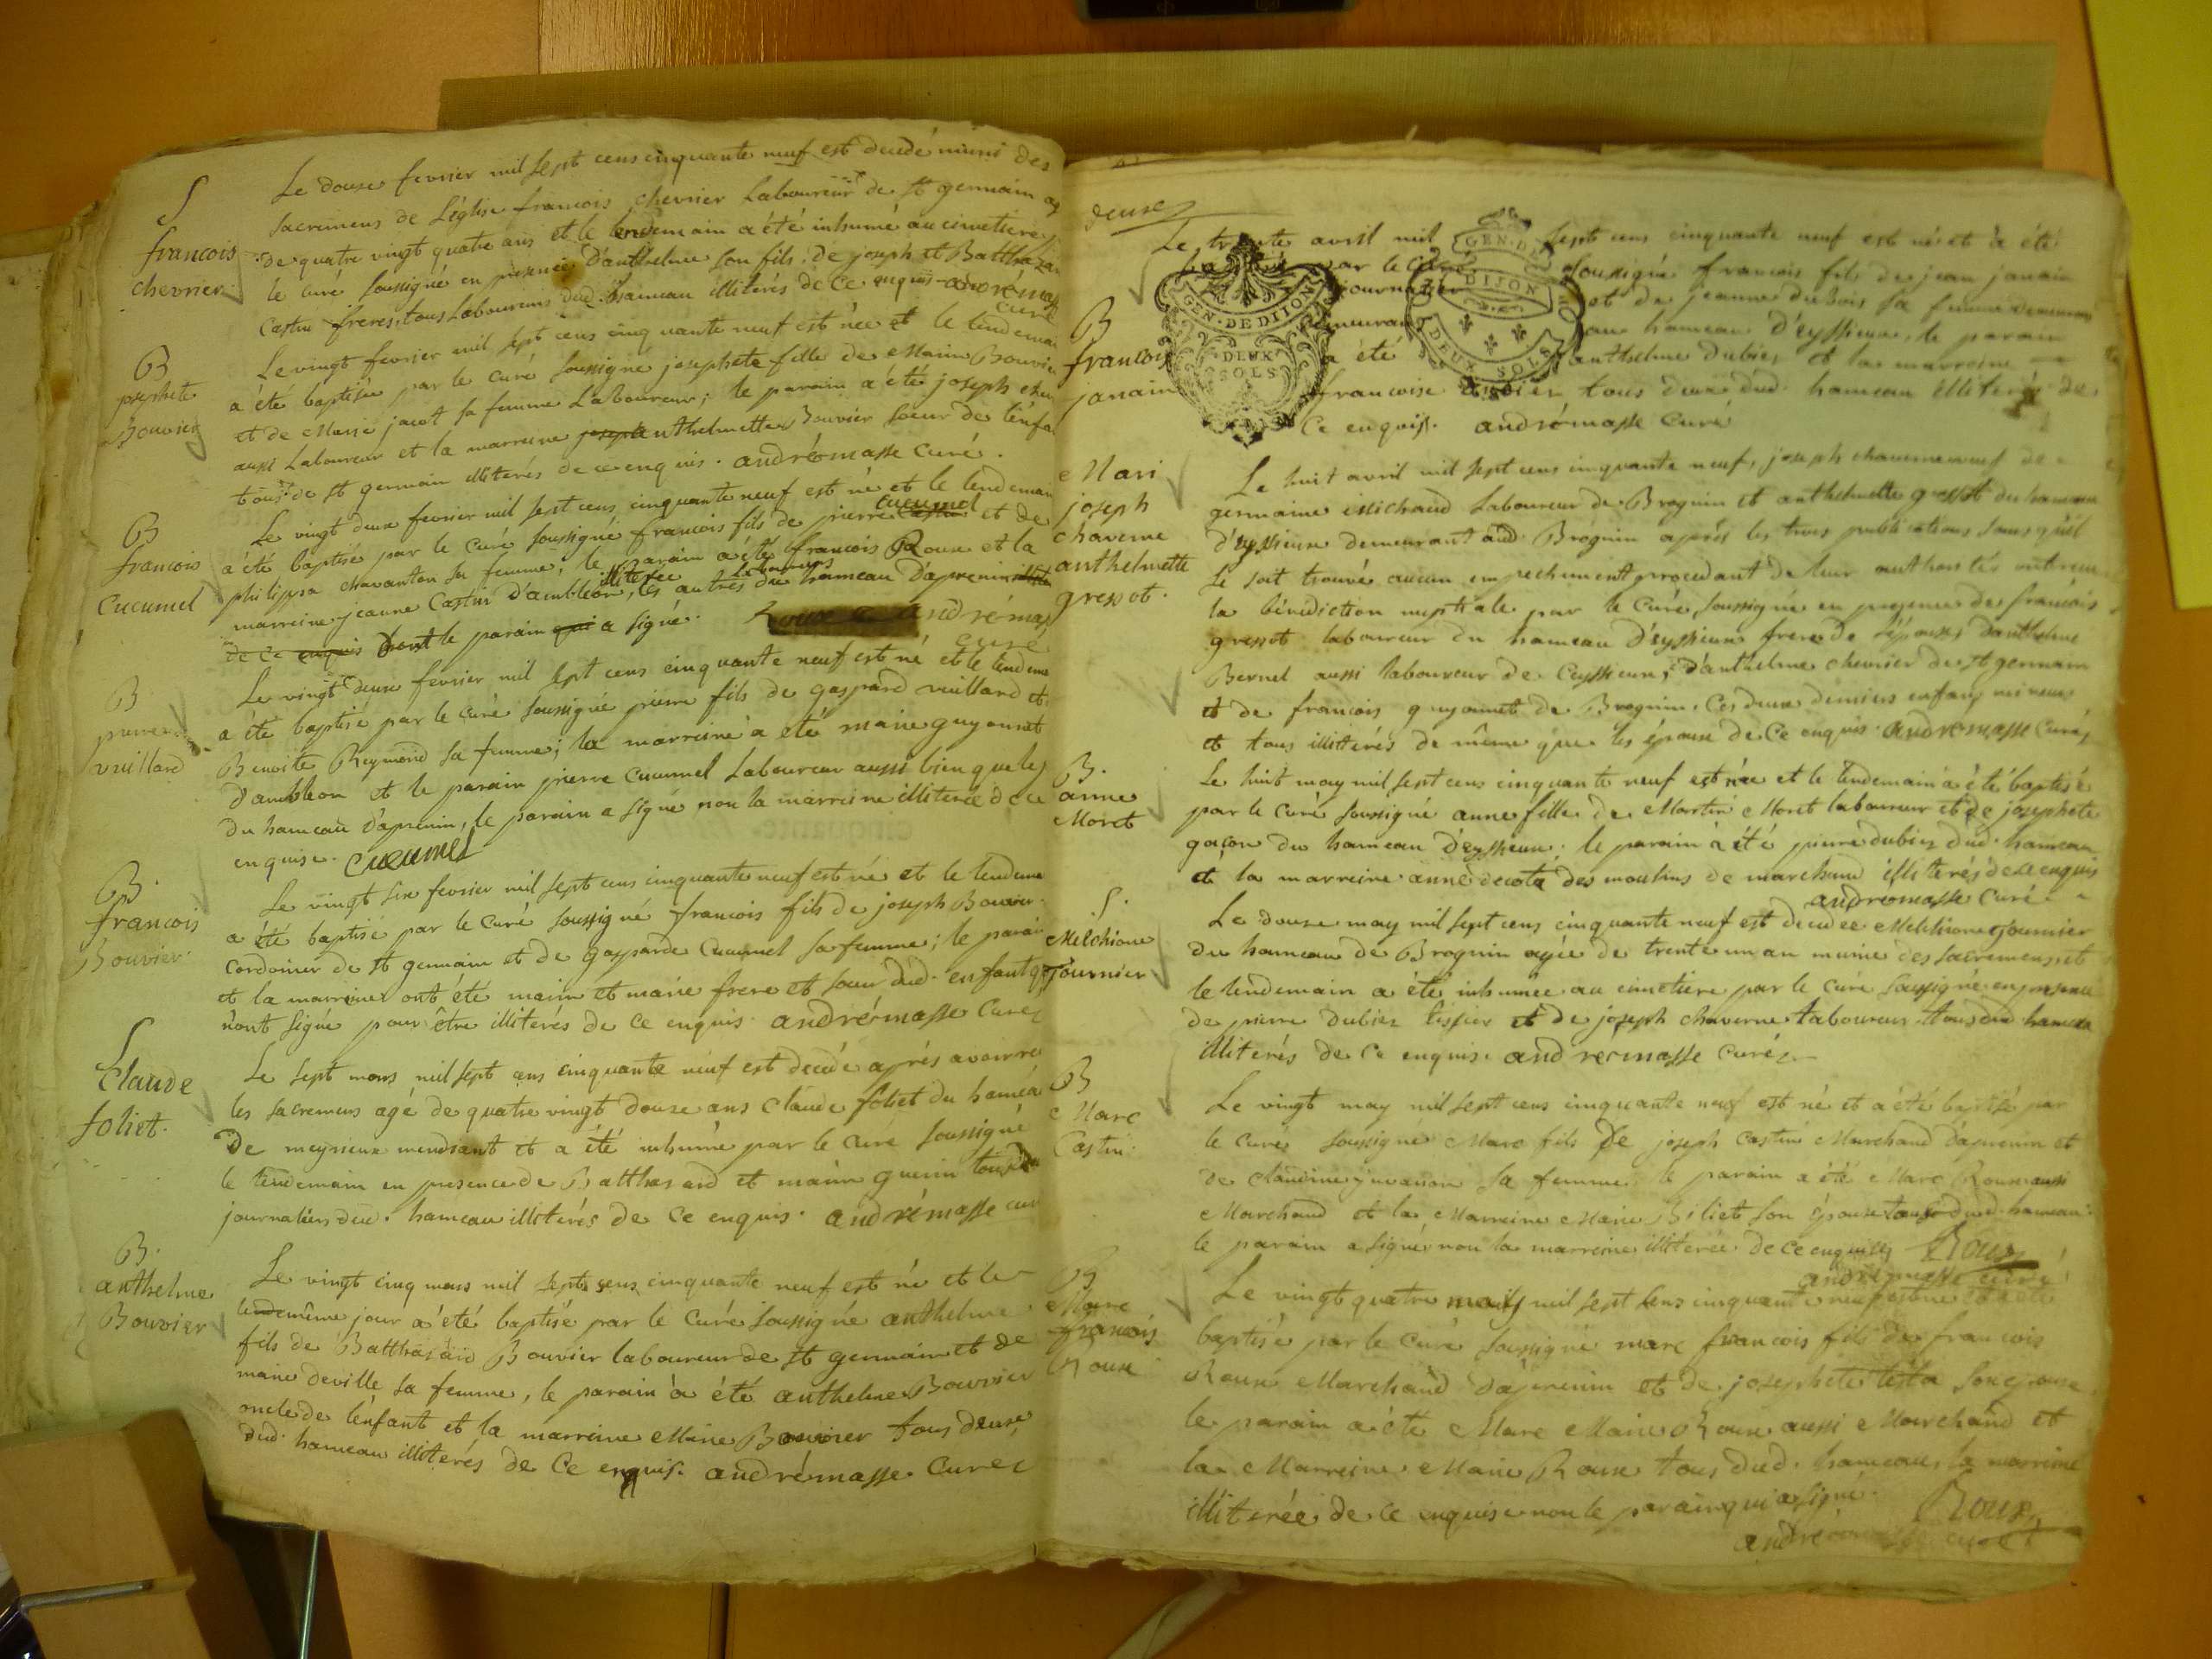 S
francois
chevrier
Le douse fevrier mil sept cens cinquante neuf est decedé muni des
sacremens de l'église francois chevrier Laboureur de st germain
de quatre vingt quatre ans et le lendemain a été inhumé au cimetiere
le curé soussigné en presence d'anthelme son fils, de joseph et Balthazar
Castin freres, tous Laboureurs dud. hameau illiterés de ce enquis andrémasse
curé
B
josephete
Bouvier
Le vingt fevrier mil sept cens cinquante neuf est née et le lendemain
a été baptisée par le curé soussigné josephete fille de Maurin Bouvier
et de Marie jacot sa femme Laboureur; le parain a été joseph
aussi Laboureur et la marreine anthelmette Bouvier soeur de l'enfa
tous de st germain illiterés de ce enquis. andrémasse curé.
B
francois
Cucumel
Le vingt deux fevrier mil sept cens cinquante neuf est né et le lendemain
a été baptisé par le curé soussigné francois fils de pierre cucumel et de
philippa chavanton sa femme, le parain a été francois Roux et la
marreine jeanne Castin d'ambléon, illiterée les autres Laboureurs du hameau d'aprenin
de ce enquis dont le parain qui a signé. Roux andrémas
curé
B
pierre
vuillard
Le vingt deux fevrier mil sept cens cinquante neuf est né et le lendem
a été baptisé par le curé soussigné pierre fils de gaspard vuillard et
Benoite Reymond sa femme; la marreine a été marie guyonnet
d'ambleon et le parain pierre Cucumel Laboureur aussi bien que les
du hameau d'aprenin, le parain a signé non la marreine illiterée de ce
enquise. Cucumel
B.
francois
Bouvier
Le vingt six fevrier mil sept cens cinquante neuf est né et le lendem
a été baptisé par le curé soussigné francois fils de joseph Bouvier
Cordonier de st germain et de gasparde Cucumel sa femme; le parai
et la marreine ont été maurin et marie frere et soeur dud. enfant q
n'ont signé pour être illiterés de ce enquis. andrémasse curé
S
Claude
foliet.
Le sept mars mil sept cens cinquante neuf est decedé après avoir re
les sacremens agé de quatre vingt douse ans claude foliet du hamea
de meyrieux mendiant et a été inhumé par le curé soussigné
le lendemain en presence de Balthasard et maurin guerin tous d
journaliers dud. hameau illiterés de ce enquis. andrémasse cur
B.
anthelme
Bouvier
Le vingt cinq mars mil sept cens cinquante neuf est né et le
lende même jour a été baptisé par le curé soussigné anthelme
fils de Balthasard Bouvier laboureur de st germain et de
marie deville sa femme, le parain a été anthelme Bouvier
oncle de l'enfant et la marreine Marie Bouvier tous deux
dud. hameau illiterés de ce enquis. andrémasse. curé
deuse
GEN. DE DIJON
DEUX
SOLS
GEN. DE
DIJON
DEUX SOLS
B
francois
janain
Le trente avril mil sept cens cinquante neuf est né et a été
par le curé soussigné francois fils de jean janain
journalier et de jeanne dubois sa femme demeurans
demeurant au hameau d'eyssieux, le parain
a été anthelme dubiez et la marreine
francoise dubiez tous deux dud. hameau illiterés de
ce enquis. andrémasse curé
Mari
joseph
chaverne
anthelmette
gressot.
Le huit avril mil sept cens cinquante neuf, joseph chaverne veuf de
germaine michaud Laboureur de Brognin et anthelmette gressot du hameau
d'eyssieux demeurant aud. Brognin après les trois publications sans qu'il
se soit trouvé aucun empechement
la bénediction nuptiale par le curé soussigné en presence de francois
gressot laboureur du hameau d'eyssieux frere de l'épouse, d'anthelme
Bernel aussi laboureur de Ceyssieux, d'anthelme chevrier de st germain
et de francois guyonnet de Brognin, Ces deux derniers enfans mineurs
et tous illitérés de même que les époux de ce enquis. andrémasse curé
B.
anne
Moret
Le huit may mil sept cens cinquante neuf est née et le lendemain a été baptisée
par le curé soussigné anne fille de Martin Moret laboureur et de josephete
gacon du hameau d'eyssieux. le parain a été pierre dubiez dud. hameau
et la marreine anne decota des moulins de marchand illiterés de ce enquis
andrémasse curé
S.
Melchione
fournier
Le douse may mil sept cens cinquante neuf est decedée Melchione fournier
du hameau de Brognin agée de trente un an munie des sacremens, et
le lendemain a été inhumée au cimetiere par le curé soussigné en presence
de pierre dubiez tissier et de joseph chaverne laboureur tous dud. hameau
illiterés de ce enquis. andrémasse curé
B
Marc
Castin.
Le vingt may mil sept cens cinquante neuf est né et a été baptisé par
le curé soussigné Marc fils de joseph Castin Marchand d'aprenin et
de claudine juvanon sa femme. le parain a été Marc Roux aussi
Marchand et la Marreine Marie Biliet son épouse tous dud. hameau.
le parain a signé non la marreine illiterée de ce enquise Roux
andrémasse curé
B
Marc
francois
Roux
Le vingt quatre may mil sept cens cinquante neuf est né et a été
baptisé par le curé soussigné marc francois fils de francois
Roux Marchand d'aprenin et de josephete testa son épouse
le parain a été Marc Marie Roux aussi Marchand et
la Marreine Marie Roux tous dud. hameau, la marreine
illiterée de ce enquise non le parain qui a signé. Roux
andrémasse curé